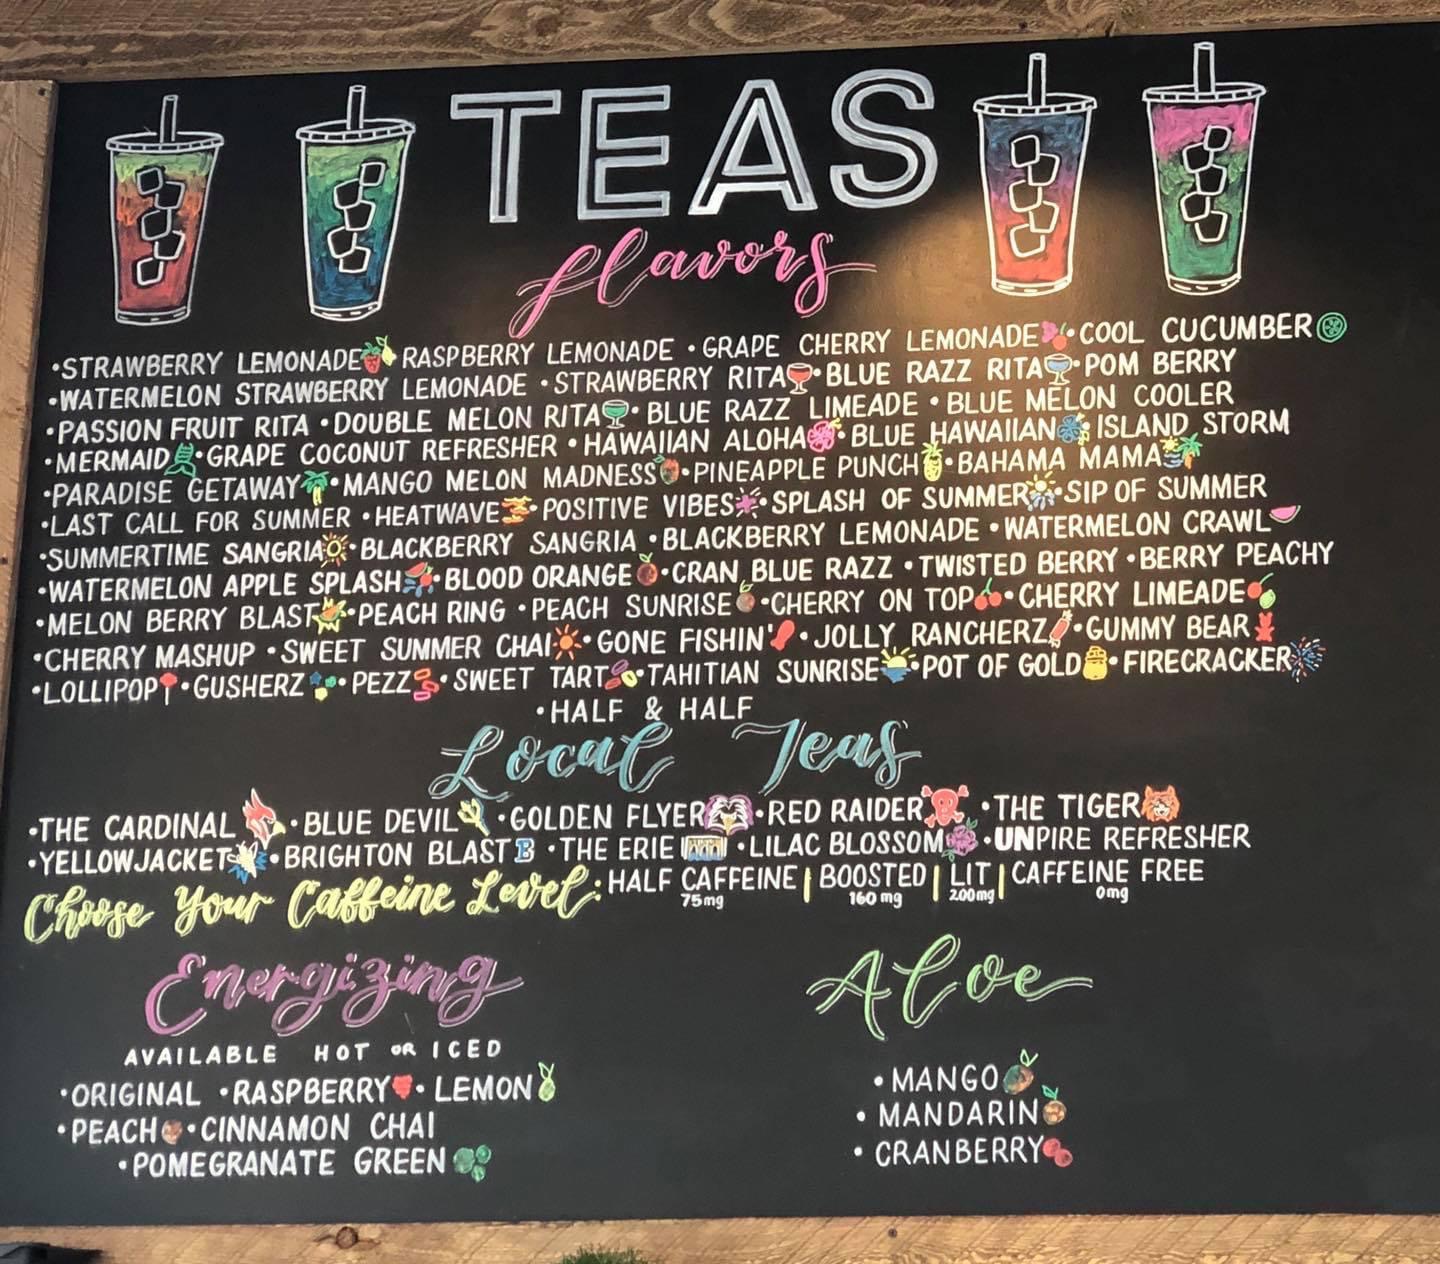 TEAS
flavors
•STRAWBERRY LEMONADE RASPBERRY LEMONADE • GRAPE CHERRY LEMONADE • COOL CUCUMBER
•WATERMELON STRAWBERRY LEMONADE •STRAWBERRY RITA •BLUE RAZZ RITA •POM BERRY
•PASSION FRUIT RITA •DOUBLE MELON RITA • BLUE RAZZ LIMEADE • BLUE MELON COOLER
•MERMAID •GRAPE COCONUT REFRESHER •HAWAIIAN ALOHA •BLUE HAWAIIAN •ISLAND STORM
•PARADISE GETAWAY •MANGO MELON MADNESS •PINEAPPLE PUNCH •BAHAMA MAMA
•LAST CALL FOR SUMMER •HEATWAVE •POSITIVE VIBES •SPLASH OF SUMMER •SIP OF SUMMER
•SUMMERTIME SANGRIA •BLACKBERRY SANGRIA •BLACKBERRY LEMONADE •WATERMELON CRAWL
•WATERMELON APPLE SPLASH •BLOOD ORANGE •CRAN BLUE RAZZ •TWISTED BERRY •BERRY PEACHY
•MELON BERRY BLAST •PEACH RING •PEACH SUNRISE •CHERRY ON TOP •CHERRY LIMEADE
•CHERRY MASHUP •SWEET SUMMER CHAI • GONE FISHIN' •JOLLY RANCHERZ •GUMMY BEAR
•LOLLIPOP •GUSHERZ • PEZZ •SWEET TART •TAHITIAN SUNRISE •POT OF GOLD •FIRECRACKER
•HALF & HALF
Local Teas
•THE CARDINAL •BLUE DEVIL •GOLDEN FLYER •RED RAIDER •THE TIGER
•YELLOWJACKET •BRIGHTON BLAST B •THE ERIE •LILAC BLOSSOM •UNPIRE REFRESHER
Choose Your Caffeine Level: HALF CAFFEINE | BOOSTED | LIT | CAFFEINE FREE
75mg 160 mg 200mg 0mg
Energizing
AVAILABLE HOT OR ICED
•ORIGINAL •RASPBERRY • LEMON
•PEACH •CINNAMON CHAI
•POMEGRANATE GREEN
Aloe
• MANGO
• MANDARIN
• CRANBERRY